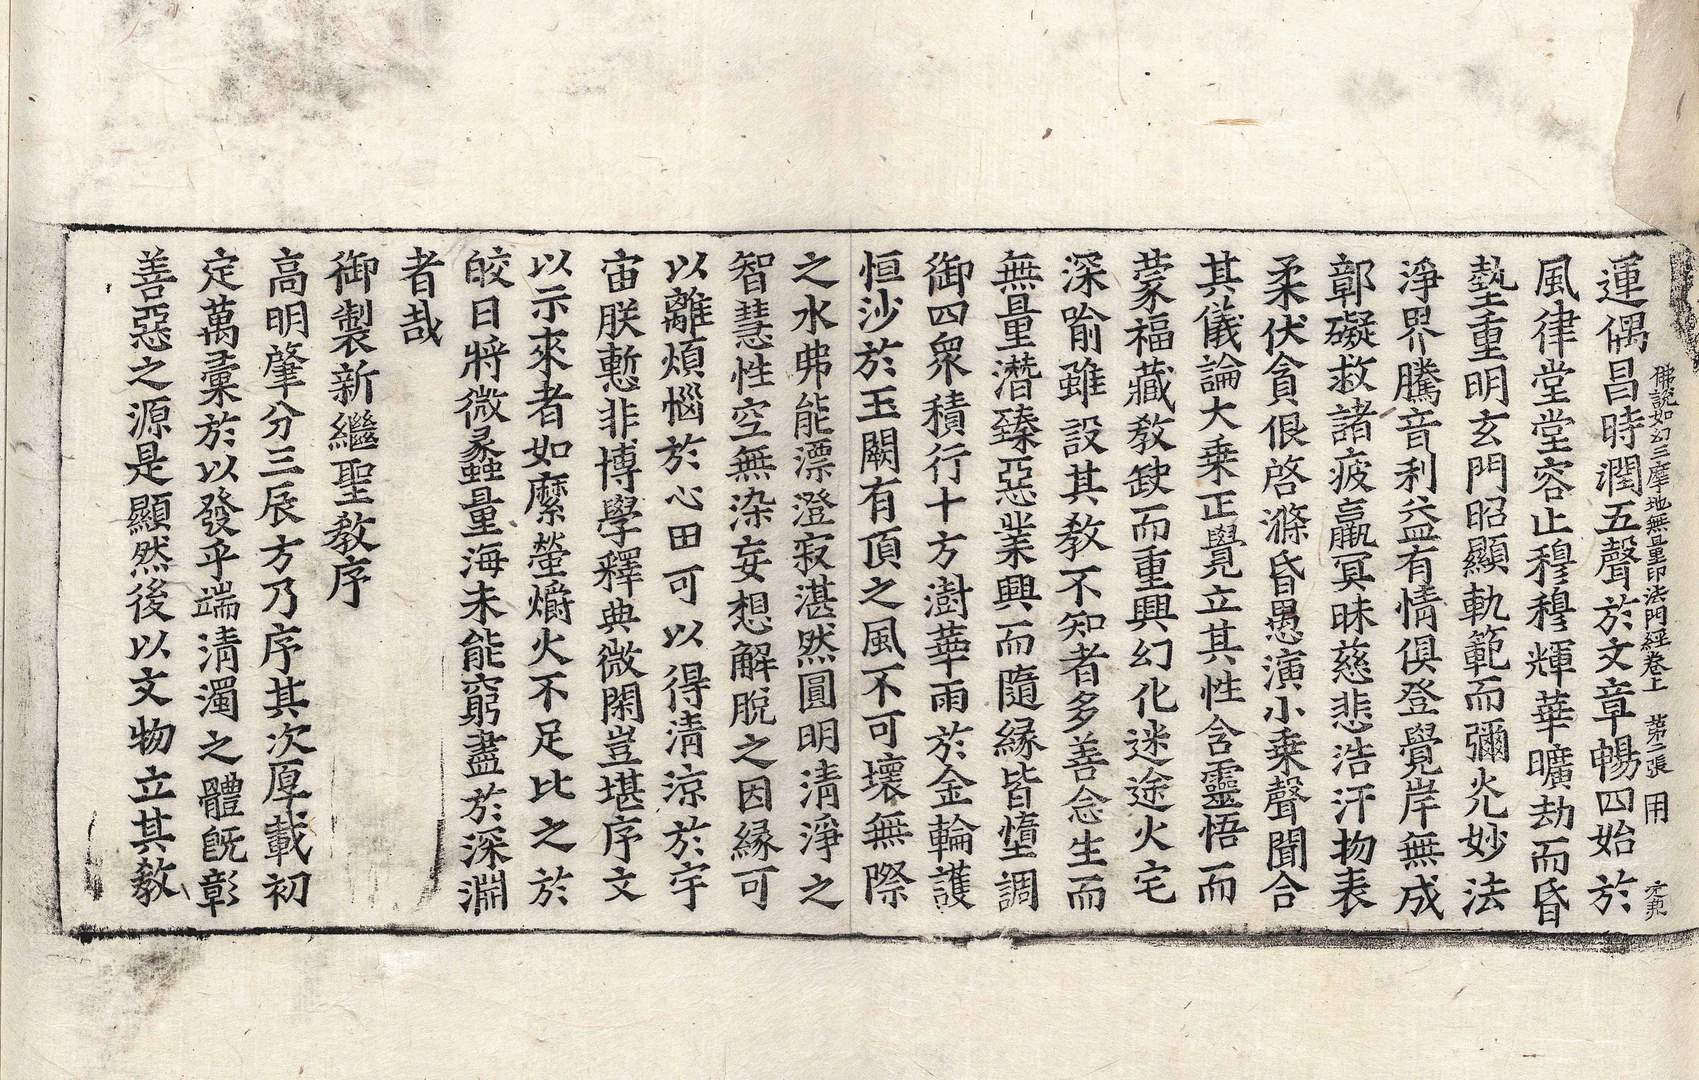 佛說如幻三摩地無量印法門經卷上 第二張 用
運偶昌時潤五聲於文章暢四始於
風律堂堂容止穆穆輝華曠劫而昏
蟄重明玄門昭顯軌範而彌光妙法
淨界騰音利益有情俱登覺岸無成
鄣礙救諸疲羸冥昧慈悲浩汗物表
柔伏貪佷啓滌昏愚演小乘聲聞合
其儀論大乘正覺立其性含靈悟而
蒙福藏教缺而重興幻化迷途火宅
深喻雖設其教不知者多善念生而
無量潛臻惡業興而隨緣皆墮調
御四衆積行十方澍華雨於金輪護
恒沙於玉闕有頂之風不可壞無際
之水弗能漂澄寂湛然圓明清淨之
智慧性空無染妄想解脫之因緣可
以離煩惱於心田可以得清涼於宇
宙朕慙非博學釋典微閑豈堪序文
以示來者如縻螢爝火不足比之於
皎日將微蠡量海未能窮盡於深淵
者哉
御製新繼聖教序
高明肇分三辰方乃序其次厚載初
定萬彙於以發乎端清濁之體旣彰
善惡之源是顯然後以文物立其教